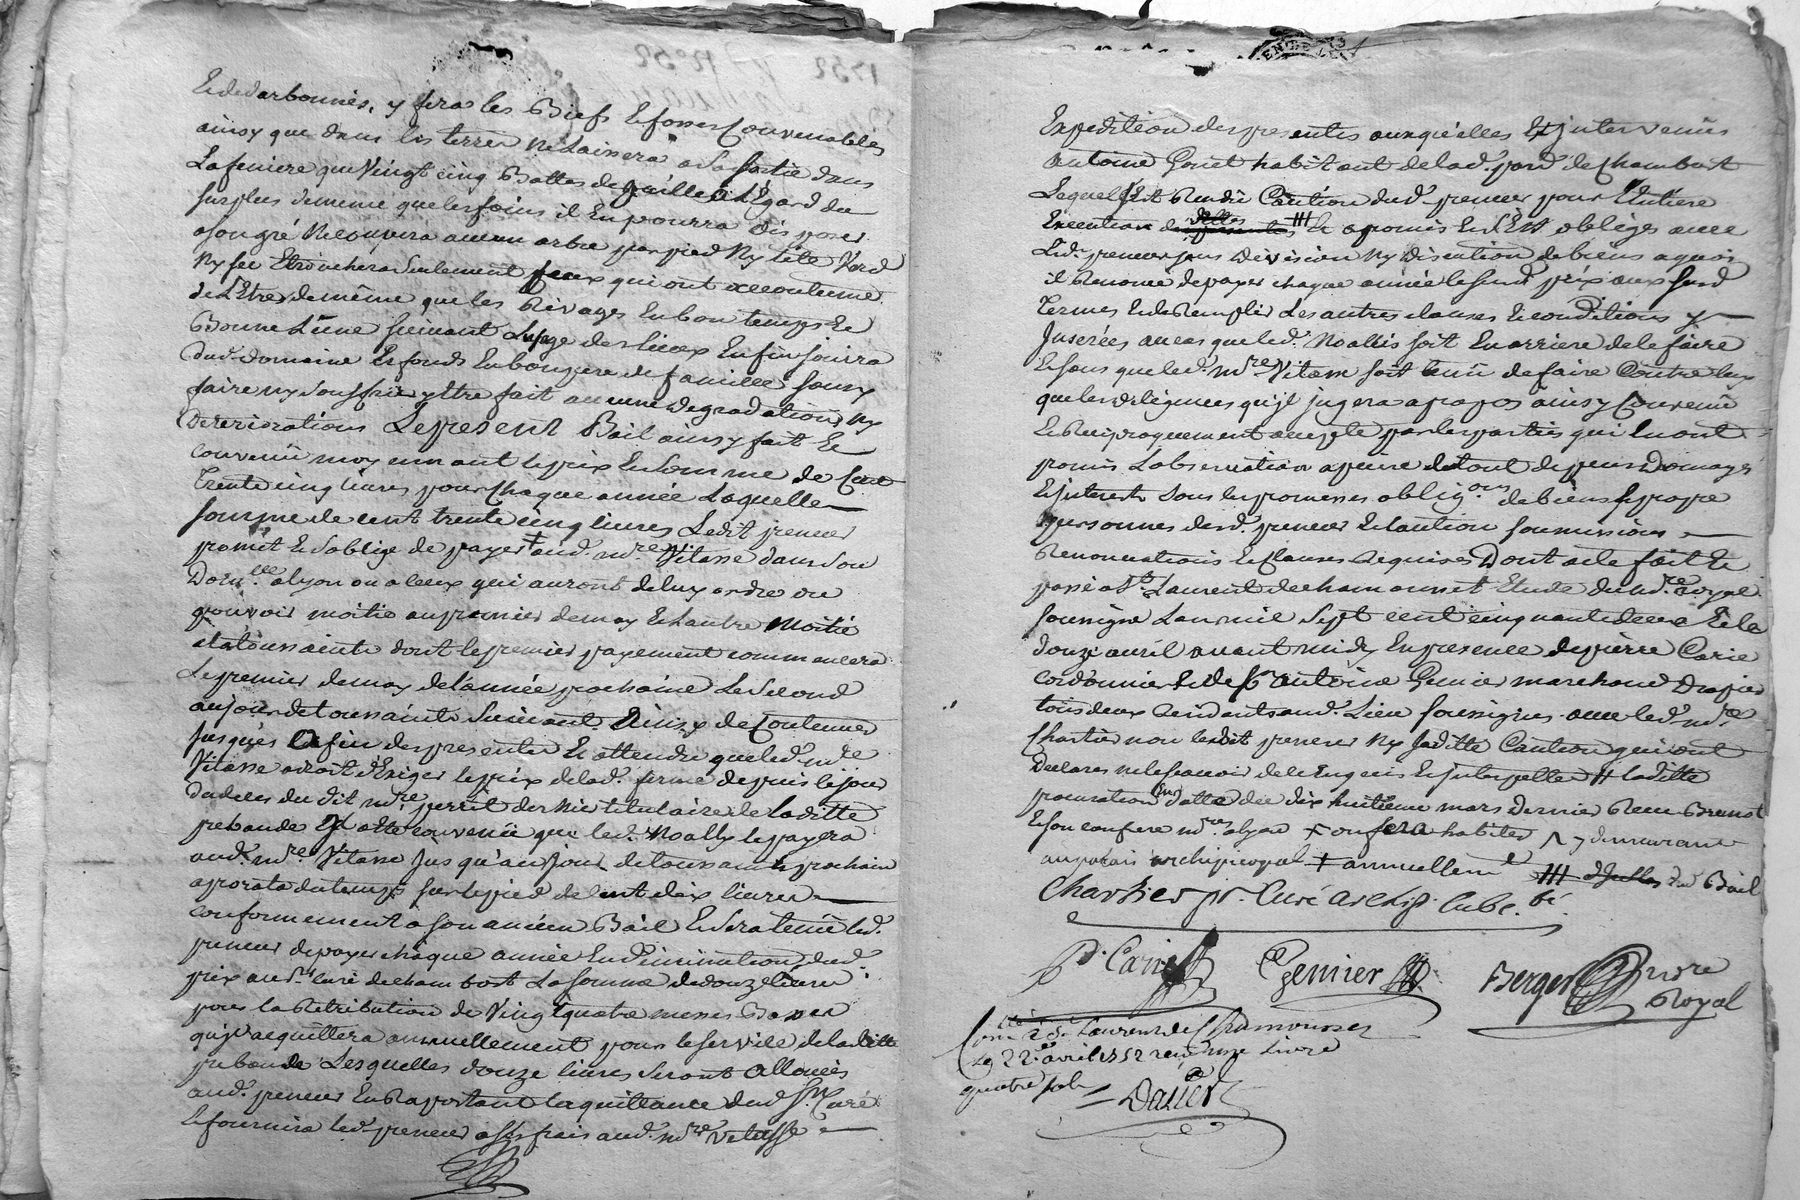 Et de Varbonnes, y fera les Biefs Et fosses Convenables
ainsy que dans les terres Ne Laissera a Sa Sortie dans
La feniere que Vingt cinq Battes de paille a L'Egard du
Surplus de meme que les foins il En pourra dis poser
a son gré Ne coupera aucun arbre par pied Ny tête Verd
Ny sec Et trochera Seulement Ceux qui ont accoutumé
de L'Etre de même que les Rivages En bon temps Et
Bonne Lüne suivant Lusage des lieux Enfin Joüira
dud. Domaine Et fonds En bon pere de famille sans y
faire ny Souffrir y ttre fait aucune Degradations Ny
Deteriorations Le present Bail ainsy fait Et
convenü moyennant le prix En Somme de Cent
Trente cinq livres pour Chaque année Laquelle
Somme de cent trente cinq livres Ledit preneur
promet Et S'oblige de payer + aud. mre Vitasse dans Son
Domlle a lyon ou a ceux qui auront de luy ordre ou
pouvoir moitié au premier de may Et L'autre Moitié
a la toussaints dont le premier payement commencera
Le premier de may de l'année prochaine Le Second
au jour de toussaints Suivant Ainsy de Continuer
Jusques a la fin des presentes Et attendu que led. mre
Vitasse a droit d'Exiger le prix de lad. ferme depuis le jour
du deces du dit mre perrit dernier titulaire de laditte
prebande Il a ette convenü que led. Noally le payera
aud. mre Vitasse Jus qu'au Jour de toussaints prochain
a prorata du temps sur le pied de Cent dix livres
conformement a son ancien Bail Et Sera tenü led.
preneur de payer chaque année En Diminution dud.
prix au Sr. curé de chambost La Somme de douze livres
pour la Retribution de Vingt quatre messes Basses
qu'il acquittera annuellement pour le Service de laditte
prebande Lesquelles douze livres Seront allouées
aud. preneur En Raportant la quittance dud. Sr. Curé
Et fournira led. preneur a Ses frais aud. mre Vitasse
Expedition des presentes auxquelles Est Intervenu
antoine Goriet habitant de lad. parr. de Chambost
Lequel S'est Rendü Caution dud. preneur pour L'Entiere
Execution Et a promis Et S'est obligé avec
Led. preneur sans Division Ny Discution de biens a quoi
il Renonce de payer chaque année le Susd. prix aux Susd.
Termes Et de Remplir Les autres clauses Et conditions y
Inserées au cas que led. Noallis soit En arriere de le faire
Et sans que led. mre Vitasse soit tenü de faire Contre luy
que les diligences qu'il jugera a propos ainsy Convenü
Et Reciproquement accepté par les parties qui En ont
promis L'observation a peine de tout depens Domages
Et Interests Sous les promesses obligons de biens Et propre
personnes desd. preneur Et Caution soumissions
Renonciations Et clauses Requises Dont acte fait Et
passé a St. Laurent de chamousset Etude du nre. royal
soussigné L'an mil Sept cent cinquante deux Et le
douze avril avant midy En presence de pierre Carie
cordonnier Et de Sr. antoine Genier marchand Drapier
tous deux Residants aud. Lieu soussignés avec led. mre
Chartier non ledit preneur Ny laditte Caution qui ont
Declarés ne le sçavoir de ce Enquis Et Interpellés # laditte
procuration En datte du dix huitieme mars Dernier Receu Brunot
Et son confrere nres a lyon + on fera habiter ^ demeurant
au palais archiepiscopal + annuellemt. dud. Bail
Chartier pr. Curé archip.
P. Carie Genier Berger Nore
Royal
Conlé a St. Laurent de Chamousset
Le 22e avril 1752 reçu une Livre
quatre sols
= Dalier